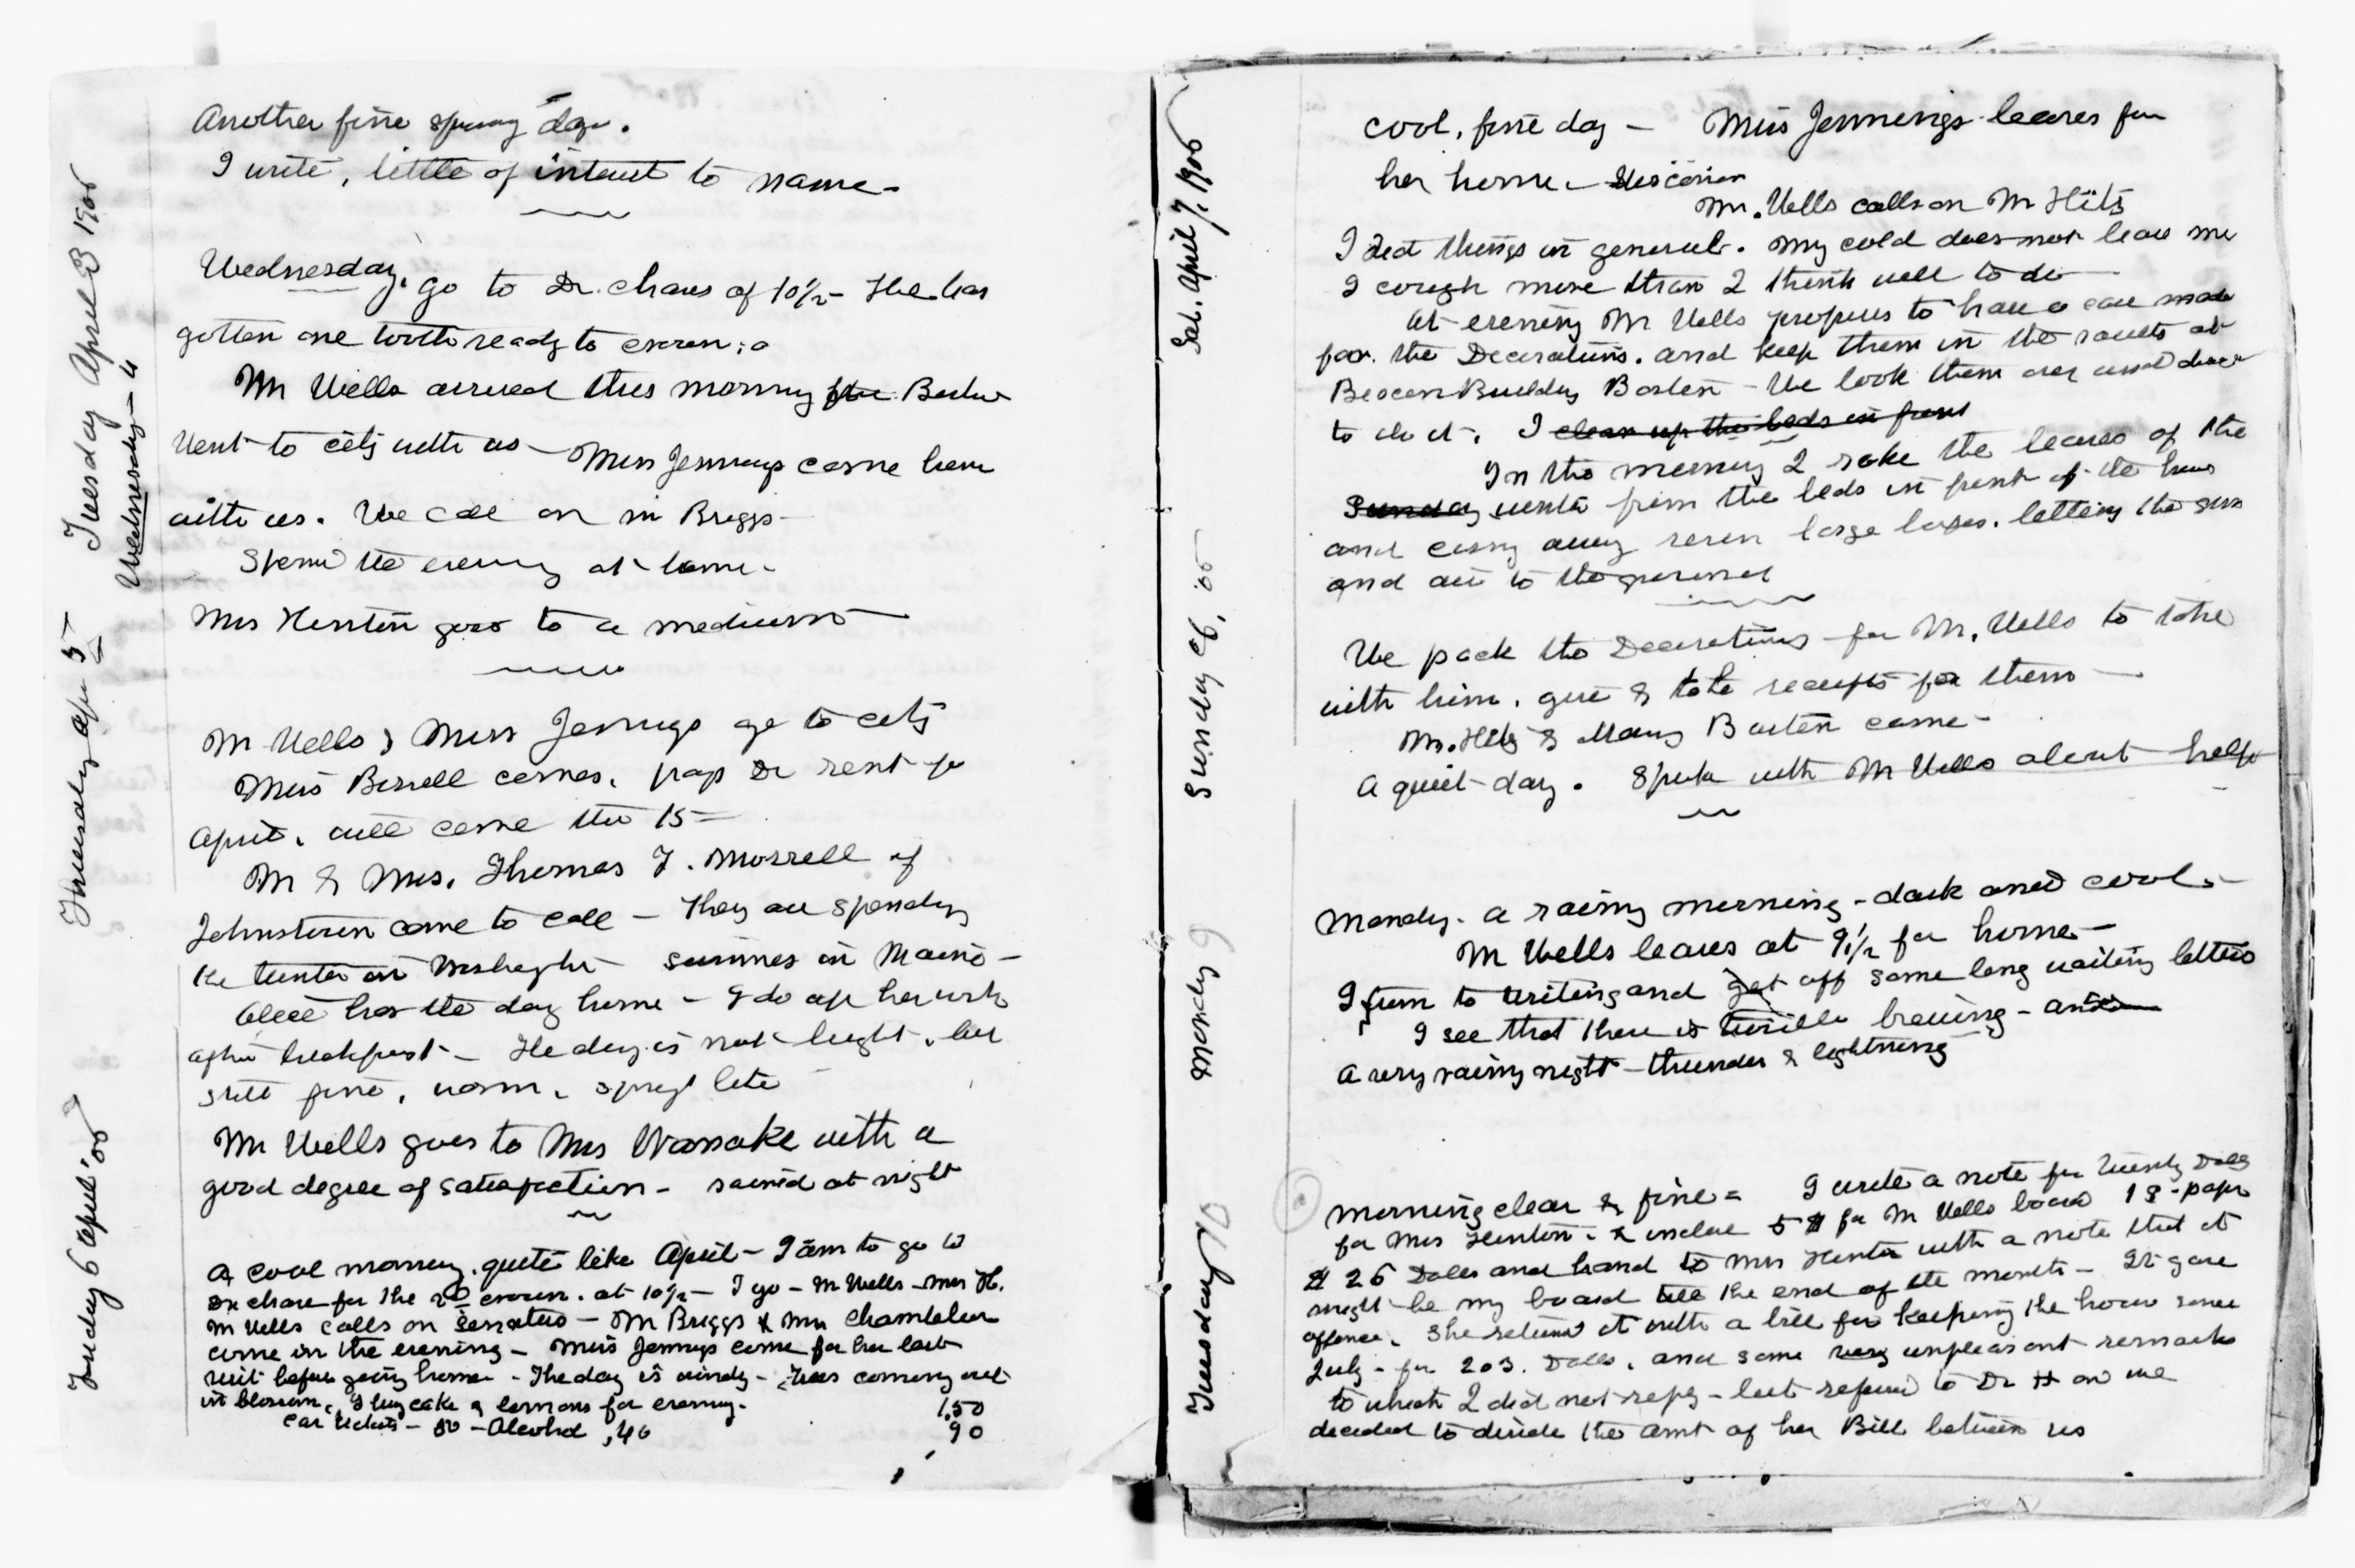 Tuesday April 3 1900
Another fine spring day.
I write, little of interest to name -
Wednesday - 4
Wednesday. go to Dr. Chases at 10 1/2 - He has
gotten one tooth ready to crown;
Mr Wells arrived this morning from Boston
Went to city with us - Miss Jennings came home
with us. We call on Mr Briggs -
Spend the evening at home -
Mrs Hinton goes to a medium -
Thursday Apr 5
Mr Wells & Miss Jennings go to city
Miss Birrell comes, pays Dr rent for
April, will come the 15 =
Mr & Mrs. Thomas T. Morrell of
Johnstown come to call - They are spending
the winter in Washington - summers in Maine -
Alice has the day home - I do up her work
after breakfast - The day is not bright, but
still fine, warm, spring like
Mr Wells goes to Mrs Warnake with a
good degree of satisfaction - rained at night
Friday 6 April '00
A cool morning, quite like April - I am to go to
Dr Chase for the 2d crown. at 10 1/2 - I go - Mr Wells - Mrs H.
Mr Wells calls on Senators - Mr Briggs & Mrs Chamberlain
come in the evening - Miss Jennings come for her last
visit before going home - The day is windy - Trees coming out
in blossom, I buy cake & lemons for evening. 1.50
Car tickets - 50 - Alcohol ,40 90
Sat. April 7, 1900
Cool, fine day - Miss Jennings leaves for
her home - Wisconsin
Mr. Wells calls on Mr Hitz
I did things in general. My cold does not leave me
I cough more than I think well to do -
At evening Mr Wells proposes to have a case made
for the Decorations. and keep them in the vaults at
Beacon Building Boston - We look them over and decide
to do it. I clean up the beds in front
In the morning I rake the leaves of the
Sunday winter from the beds in front of the house
and carry away seven large boxes. letting the sun
and air to the ground
Sunday 8, '00
We pack the Decorations for Mr. Wells to take
with him. give & take receipts for them -
Mr. Hitz & Mary Barton came -
A quiet day. Speak with Mr Wells about help
Monday 9
Monday - a rainy morning - dark and cool -
Mr Wells leaves at 9 1/2 for home -
I turn to writing and get off some long waiting letters
I see that there is trouble brewing - and
A very rainy night - thunder & lightning
Tuesday 10
Morning clear & fine = I write a note for Twenty Dolls
for Mrs Hinton - & enclose 5 $ for Mr Wells board 18 - paper
$ 25 Dolls and hand to Mrs Hinton with a note that it
might be my board till the end of the month - It gave
offence. She returned it with a bill for keeping the house since
July - for 203. Dolls. and some very unpleasant remarks
to which I did not reply - but referred to Dr H and we
decided to divide the amt of her Bill between us